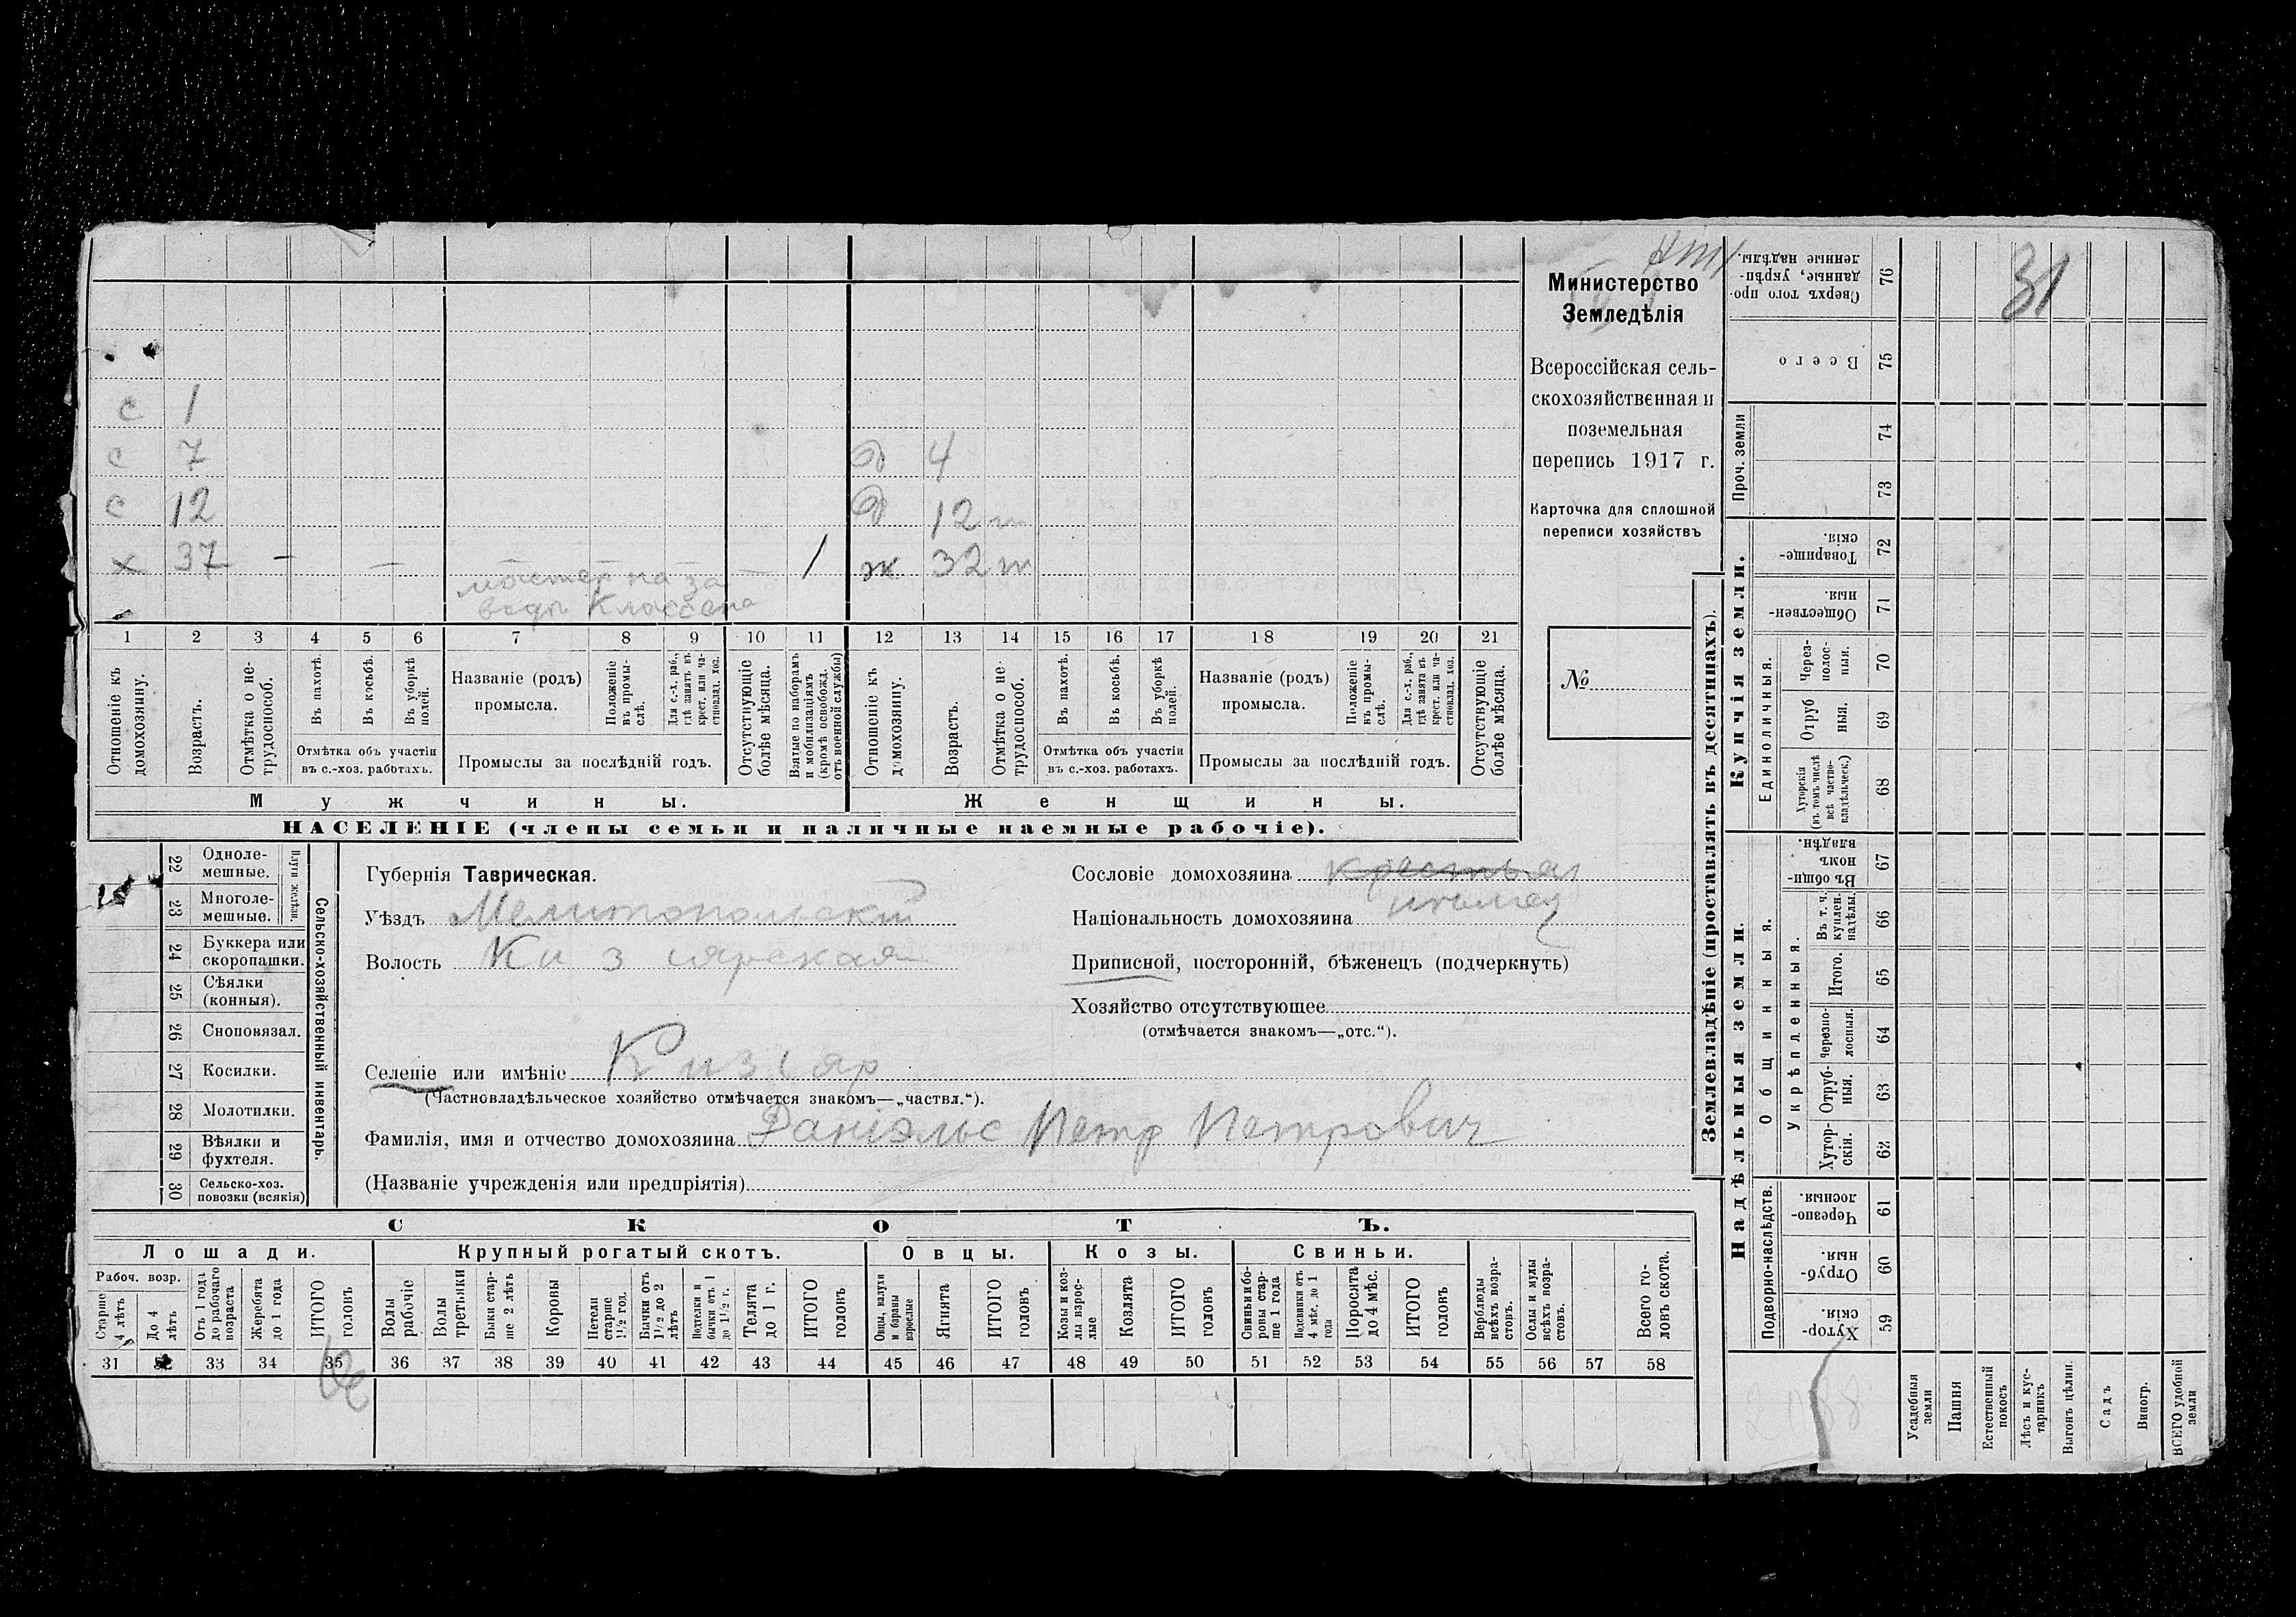 с 1
с 7 д 4
с 12 д 12
х 37 — — — 1 ж 32
мастер на за
воде Классена
1 2 3 4 5 6 7 8 9 10 11 12 13 14 15 16 17 18 19 20 21
Отношеніе къ домохозяину.
Возрастъ.
Отмѣтка о не-
трудоспособ.
Въ пахотѣ.
Въ косьбѣ.
Въ уборкѣ
полей.
Отмѣтка объ участіи
въ с.-хоз. работахъ.
Названіе (родъ)
промысла.
Положеніе
въ промы-
слѣ.
Для с.-х. раб.,
гдѣ занятъ въ
крест. или ча-
стновлад. хоз.
Промыслы за послѣдній годъ.
Отсутствующіе
болѣе мѣсяца.
Взятые по наборамъ
и мобилизаціямъ
(кромѣ освобожд.
отъ военной службы)
Отношеніе къ
домохозяину.
Возрастъ.
Отмѣтка о не-
трудоспособ.
Въ пахотѣ.
Въ косьбѣ.
Въ уборкѣ
полей.
Отмѣтка объ участіи
въ с.-хоз. работахъ.
Названіе (родъ)
промысла.
Положеніе
въ промы-
слѣ.
Для с.-х. раб.,
гдѣ занята въ
крест. или ча-
стновлад. хоз.
Промыслы за послѣдній годъ.
Отсутствующіе
болѣе мѣсяца.
Мужчины. Женщины.
НАСЕЛЕНІЕ (члены семьи и наличные наемные рабочіе).
Министерство
Земледѣлія
Всероссійская сель-
скохозяйственная и
поземельная
перепись 1917 г.
Карточка для сплошной
переписи хозяйствъ
№
22 Одноле-
мешные.
23 Многоле-
мешные.
Плуги желѣзн.
24 Буккера или
скоропашки.
25 Сѣялки
(конныя).
26 Сноповязал.
27 Косилки.
28 Молотилки.
29 Вѣялки и
фухтеля.
30 Сельско-хоз.
повозки (всякія)
Сельско-хозяйственный инвентарь.
Губернія Таврическая.
Уѣздъ Мелитопольскій
Волость Кизлярская
Селеніе или имѣніе Кизляр
(Частновладѣльческое хозяйство отмѣчается знакомъ—„частвл.“).
Фамилія, имя и отчество домохозяина Даніэльс Петр Петрович
(Названіе учрежденія или предпріятія)
Сословіе домохозяина крестьян
Національность домохозяина немец
Приписной, посторонній, бѣженецъ (подчеркнуть)
Хозяйство отсутствующее
(отмѣчается знакомъ—„отс.“).
СКОТЪ.
Лошади. Крупный рогатый скотъ. Овцы. Козы. Свиньи.
Рабоч. возр.
Старше
4 лѣтъ
До 4
лѣтъ
Отъ 1 года
до рабочаго
возраста
Жеребята
до 1 года
ИТОГО
головъ
Волы
рабочіе
Волы
третьяки
Быки стар-
ше 2 лѣтъ
Коровы
Нетели
старше
1½ год.
Бычки отъ
1½ до 2
лѣтъ
Подтелки и
бычки отъ 1
до 1½ г.
Телята
до 1 г.
ИТОГО
головъ
Овцы, валухи
и бараны
взрослые
Ягнята
ИТОГО
головъ
Козы и коз-
лы взрос-
лые
Козлята
ИТОГО
головъ
Свиньи и бо-
ровы стар-
ше 1 года
Подсвинки отъ
4 мѣс. до 1
года
Поросята
до 4 мѣс.
ИТОГО
головъ
Верблюды
всѣхъ возра-
стовъ.
Ослы и мулы
всѣхъ возра-
стовъ.
Всего го-
ловъ скота.
31 32 33 34 35 36 37 38 39 40 41 42 43 44 45 46 47 48 49 50 51 52 53 54 55 56 57 58
Землевладѣніе (проставлять въ десятинахъ).
Надѣльныя земли. Купчія земли.
Проч. земли
Подворно-наслѣдств.
Общинныя.
Укрѣпленныя.
Единоличныя.
Сверхъ того про-
данные, укрѣп-
ленные надѣлы. 76
31
Всего 75
74
73
Товарище-
скія. 72
Обществен-
ныя. 71
Через-
полос-
ныя. 70
Отруб
ныя. 69
Хуторскія
(въ томъ числѣ
всѣ частно-
владѣльческ.) 68
Въ общи-
номъ
владѣн. 67
Въ т. ч.
куплен.
надѣлы. 66
Итого. 65
Черезпо-
лосныя. 64
Отруб-
ныя. 63
Хутор-
скія. 62
Черезпо-
лосныя. 61
Отруб-
ныя. 60
Хутор-
скія. 59
Усадебныя
земли
Пашня
Естественный
покосъ
Лѣсъ и кус-
тарникъ
Выгонъ цѣлин.
Садъ
Виногр.
ВСЕГО удобной
земли